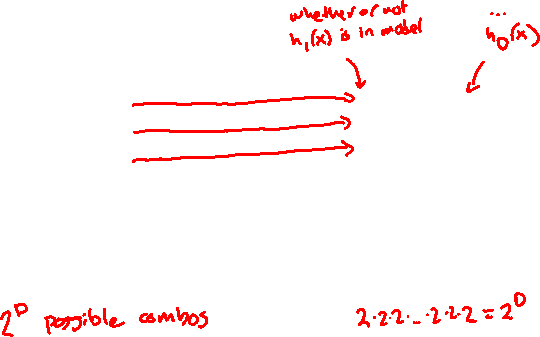 whether or not
h₁(x) is in model
...
h_D(x)
2^D possible combos
2·2·2·...·2·2·2 = 2^D